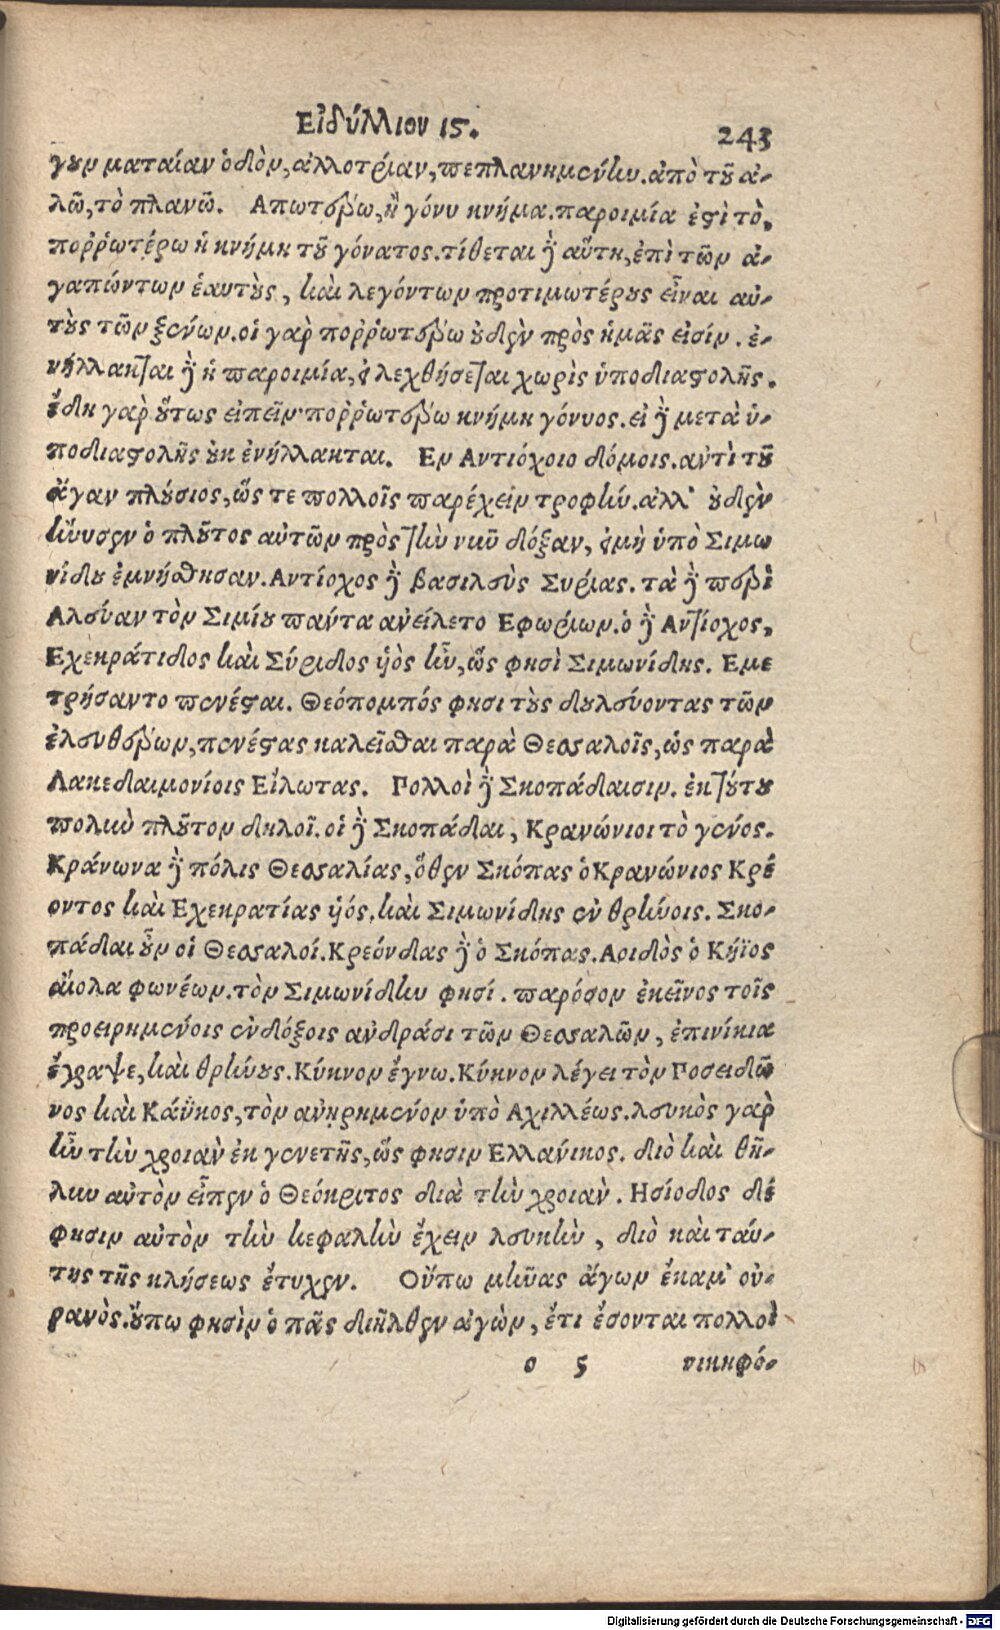 Εἰδύλλιον 15. 243
γουν ματαίαν ὁδὸν, ἀλλοτρίαν, πεπλανημένην. ἀπὸ τοῦ ἀ-
λῶ, τὸ πλανῶ. Απωτέρω, ἢ γόνυ κνήμα. παροιμία ἐστὶ τὸ,
ποῤῥωτέρω ἡ κνήμη τοῦ γόνατος. τίθεται δὲ αὕτη, ἐπὶ τῶν ἀ-
γαπώντων ἑαυτοὺς, καὶ λεγόντων προτιμωτέρους εἶναι αὐ-
τοὺς τῶν ξένων. οἱ γὰρ ποῤῥωτέρω οὐδὲν πρὸς ἡμᾶς εἰσίν. ἐ-
νήλλακται δὲ ἡ παροιμία, εἰ λεχθήσεται χωρὶς ὑποδιαστολῆς.
ἔδη γὰρ οὕτως εἰπεῖν· ποῤῥωτέρω κνήμη γόνυος. εἰ δὲ μετὰ ὑ-
ποδιαστολῆς οὐκ ἐνήλλακται. Εν Αντιόχοιο δόμοις. ἀντὶ τοῦ
ἄγαν πλούσιος, ὥς τε πολλοῖς παρέχειν τροφήν. ἀλλ' οὐδὲν
ἤνυσεν ὁ πλοῦτος αὐτῶν πρὸς τὴν νῦν δόξαν, εἰ μὴ ὑπὸ Σιμω
νίδου ἐμνήσθησαν. Αντίοχος δὲ βασιλεὺς Συρίας. τὰ δὲ περὶ
Αλεύαν τὸν Σιμίου πάντα ἀνείλετο Εφωρίων. ὁ δὲ Αντίοχος,
Εχεκράτιδος καὶ Σύριδος ὑὸς ἦν, ὥς φησὶ Σιμωνίδης. Εμε
τρήσαντο πενέσται. Θεόπομπός φησι τοὺς δουλεύοντας τῶν
ἐλευθέρων, πενέστας καλεῖσθαι παρὰ Θεσσαλοῖς, ὡς παρὰ
Λακεδαιμονίοις Εἵλωτας. Πολλοὶ δὲ Σκοπάδαισιν. ἐκ τούτου
πολὺν πλοῦτον δηλοῖ. οἱ δὲ Σκοπάδαι, Κρανώνιοι τὸ γένος.
Κράνωνα δὲ πόλις Θεσσαλίας, ὅθεν Σκόπας ὁ Κρανώνιος Κρέ
οντος καὶ Εχεκρατίας ὑός. καὶ Σιμωνίδης ἐν θρήνοις. Σκο-
πάδαι οὖν οἱ Θεσσαλοί. Κρεόνδας δὲ ὁ Σκόπας. Αοιδὸς ὁ Κήϊος
αἴολα φωνέων. τὸν Σιμωνίδην φησί. παρόσον ἐκεῖνος τοῖς
προειρημένοις ἐνδόξοις ἀνδράσι τῶν Θεσσαλῶν, ἐπινίκια
ἔγραψε, καὶ θρήνους. Κύκνον ἔγνω. Κύκνον λέγει τὸν Ποσειδῶ
νος καὶ Κάϋκος, τὸν ἀνῃρημένον ὑπὸ Αχιλλέως. λευκὸς γὰρ
ἦν τὴν χροιὰν ἐκ γενετῆς, ὥς φησιν Ελλάνικος. διὸ καὶ θῆ-
λυν αὐτὸν εἶπεν ὁ Θεόκριτος διὰ τὴν χροιάν. Ησίοδος δέ
φησιν αὐτὸν τὴν κεφαλὴν ἔχειν λευκὴν, διὸ καὶ ταύ-
της τῆς κλήσεως ἔτυχεν. Οὔπω μῆνας ἄγων ἔκαμ' οὐ-
ρανὸς. οὔπω φησὶν ὁ πᾶς διῆλθεν ἀγὼν, ἔτι ἔσονται πολλοὶ
o 5 νικηφό-
Digitalisierung gefördert durch die Deutsche Forschungsgemeinschaft - DFG